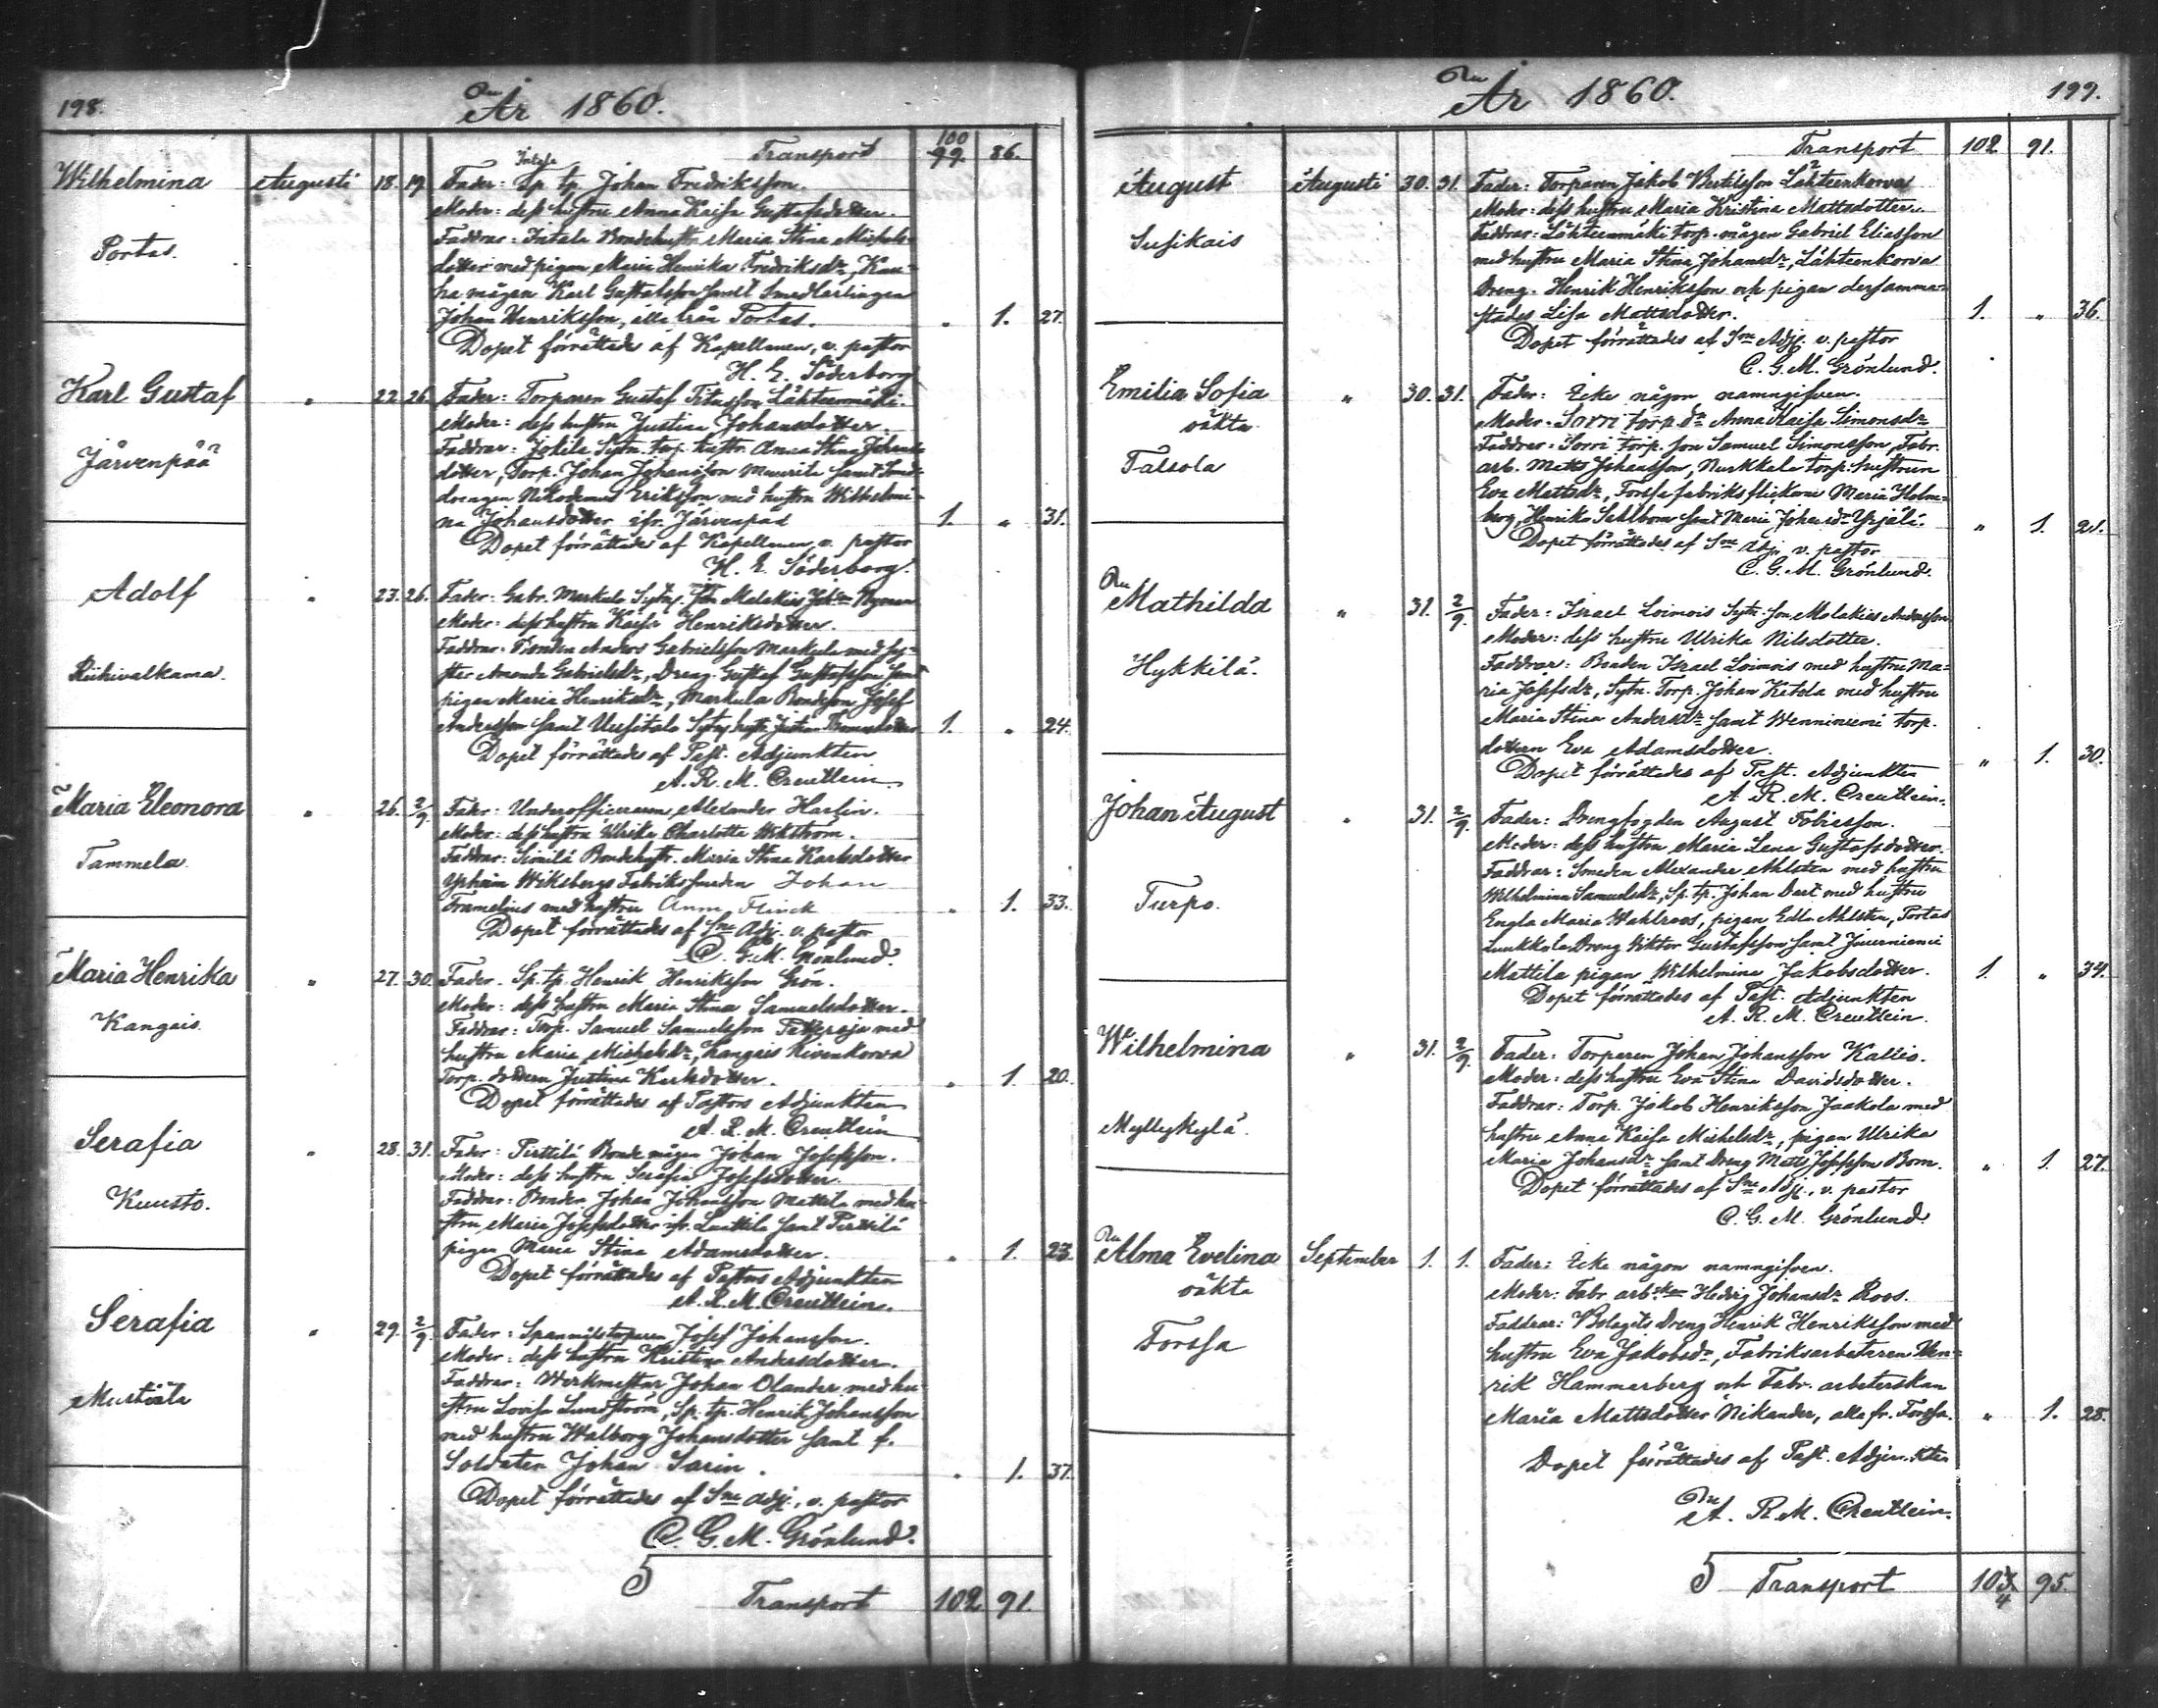 198.
År 1860.
Transport 100 99. 86.
Wilhelmina Augusti 18. 19. Fader: Sp. tp. Johan Fredriksson.
Moder: dess hustru Anna Kaisa Gustafsdotter.
Portas.
Faddrar: Intala Bondehustr. Maria Stina Michels-
dotter med pigan Maria Henrika Fredriksdr,
mågen Karl Gustafsson samt
Johan Henriksson, alla från Portas. „ 1. 27.
Dopet förrättades af Kapellanen, v. pastor
H. E. Söderborg
Karl Gustaf „ 22. 26. Fader: Torparen Gustaf Titusson Lähteenmäki.
Moder: dess hustru Justina Johansdotter.
Järvenpää
Faddrar: Jokila Sytn. torp. hustr. Anna Stina Johans-
dotter, Torp. Johan Johansson Maurila samt
drengen Nikodemus Eriksson med hustru Wilhelmi-
na Johansdotter ifr. Järvenpää 1. „ 31.
Dopet förrättades af Kapellanen, v. pastor
H. E. Söderborg.
Adolf „ 23. 26. Fader: Gabr. Markula Sytn. Malakias Nyman
Moder: dess hustru Kaisa Henriksdotter.
Riihivalkama.
Faddrar: Bonden Anders Gabrielsson Markula med sy-
ster Amanda Gabrielsdr, Dreng. Gustaf Gustafsson samt
pigan Maria Henriksdr, Markula Bondeson Josef
Andersson samt Uusitalo 1. „ 24.
Dopet förrättades af Past. Adjunkten
A. R. M. Creutlein.
Maria Eleonora „ 26. 2/9. Fader: Underofficeraren Alexander Harlin.
Moder: dess hustru Ulrika Charlotta Wikström.
Tammela.
Faddrar: Simila Bondehustr. Maria Stina Karlsdotter
Wiksbergs Fabrikssmeden Johan
Framelius med hustru Anna Flinck „ 1. 33.
Dopet förrättades af Sne Adj. v. pastor
C. G. M. Grönlund.
Maria Henrika „ 27. 30. Fader: Sp. tp. Henrik Henriksson Grön.
Moder: dess hustru Maria Stina Samuelsdotter.
Kangais.
Faddrar: Torp. Samuel Samuelsson med
hustru Maria Michelsdr, Kangais Kivenkorva
Torp. dottern Justina Karlsdotter. „ 1. 20.
Dopet förrättades af Pastors Adjunkten
A. R. M. Creutlein
Serafia „ 28. 31. Fader: Pirttilä Bonde mågen Johan Josefsson.
Moder: dess hustru Serafia Josefsdotter.
Kuusto.
Faddrar: Bonden Johan Johansson Mattila med hu-
stru Maria Josefsdotter ifr. Laattila samt Pirttilä
pigan Maria Stina Adamsdotter. „ 1. 23.
Dopet förrättades af Pastors Adjunkten
A. R. M. Creutlein.
Serafia „ 29. 2/9. Fader: Spannmålstorparen Josef Johansson.
Moder: dess hustru Kristina Andersdotter.
Mustiala
Faddrar: Werkmästar Johan Olander med hu-
stru Lovisa Lundström, Sp. tp. Henrik Johansson
med hustru Walborg Johansdotter samt f.
Soldaten Johan Sarin. „ 1. 37.
Dopet förrättades af Sne Adj., v. pastor
C. G. M. Grönlund.
5 Transport 102 91.
År 1860.
199.
Transport 102 91.
August Augusti 30. 31. Fader: Torparen Jakob Bertilsson Lähteenkorva
Moder: dess hustru Maria Kristina Mattsdotter.
Susikais
Faddrar: Lähteenmäki torp. mågen Gabriel Eliasson
med hustru Maria Stina Johansdr, Lähteenkorva
Dreng. Henrik Henriksson och pigan dersamma-
stades Lisa Mattsdotter. 1. „ 36.
Dopet förrättades af Sne Adj. v. pastor
C. G. M. Grönlund.
Emilia Sofia „ 30. 31. Fader: Icke någon namngifven.
oäkta
Moder: Sorri torp. dr Anna Kaisa Simonsdr
Talsola
Faddrar: Sorri torp. son Samuel Simonsson, Fabr.
arb. Matts Johansson, Nurkkala torp. hustrun
Eva Mattsdr, Forssa fabriksflickorna Maria Holm-
berg, Henrika Sahlbom samt Maria Johansdr Yrjälä. „ 1. 21.
Dopet förrättades af Sne Adj. v. pastor
C. G. M. Grönlund.
Mathilda „ 31. 2/9. Fader: Israel Loimois Sytn. son Malakias Andersson
Moder: dess hustru Ulrika Nilsdotter.
Hykkilä.
Faddrar: Bonden Israel Loimois med hustru Ma-
ria Josefsdr, Sytn. Torp. Johan Ketola med hustru
Maria Stina Andersdr samt Wenniniemi torp.
dottern Eva Adamsdotter. „ 1. 30.
Dopet förrättades af Past. Adjunkten
A. R. M. Creutlein.
Johan August „ 31. 2/9. Fader: Drengfogden August Tobiesson.
Moder: dess hustru Maria Lena Gustafsdotter.
Turpo.
Faddrar: Smeden Alexander Ahlsten med hustru
Wilhelmina Samuelsdr, Sp. tp. Johan Dert med hustru
Engla Maria Wahlroos, pigan Edla Ahlsten, Portas
Luukkola Dreng Viktor Gustafsson samt Jouurniemi
Mattila pigan Wilhelmina Jakobsdotter. 1. „ 34.
Dopet förrättades af Past. Adjunkten
A. R. M. Creutlein.
Wilhelmina „ 31. 2/9. Fader: Torparen Johan Johansson Kallio.
Moder: dess hustru Eva Stina Davidsdotter.
Myllykylä.
Faddrar: Torp. Jakob Henriksson Jaakola med
hustru Anna Kaisa Michelsdr, pigan Ulrika
Maria Johansdr samt Dreng Matts Josefsson Bom. „ 1. 27.
Dopet förrättades af Sne Adj., v. pastor
C. G. M. Grönlund.
Alma Evelina September 1. 1. Fader: Icke någon namngifven.
oäkta
Moder: Fabr. arb.skan Hedvig Johansdr Roos.
Forssa
Faddrar: Bolagets Dreng Henrik Henriksson med
hustru Eva Jakobsdr, Fabriksarbetaren Hen-
rik Hammarberg och Fabr. arbeterskan
Maria Mattsdotter Nikander, alla fr. Forssa. „ 1. 28.
Dopet förrättades af Past. Adjunkten
A. R. M. Creutlein.
5 Transport 103 4 95.